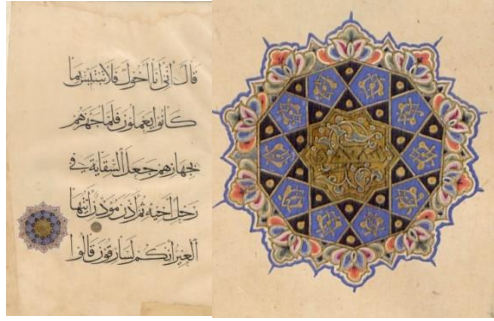 قَالَ اِنّي اَنَا اَخُوكَ فَلَا تَبْتَئِسْ بِمَا
كَانُوا يَعْمَلُونَ فَلَمَّا جَهَّزَهُمْ
بِجَهَازِهِمْ جَعَلَ السِّقَايَةَ فِي
رَحْلِ اَخِيهِ ثُمَّ اَذَّنَ مُؤَذِّنٌ اَيَّتُهَا
الْعِيرُ اِنَّكُمْ لَسَارِقُونَ قَالُوا